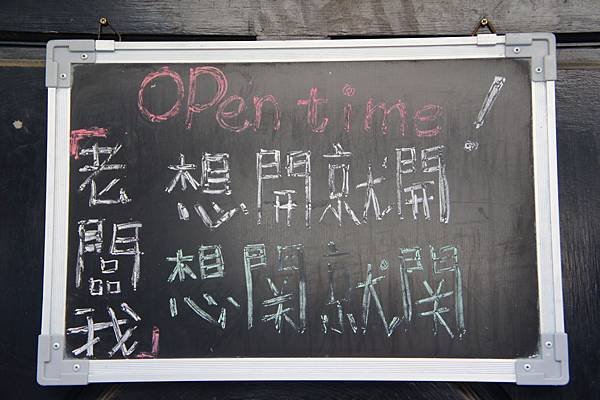 OPen time!
「老闆我」
想開就開
想關就關